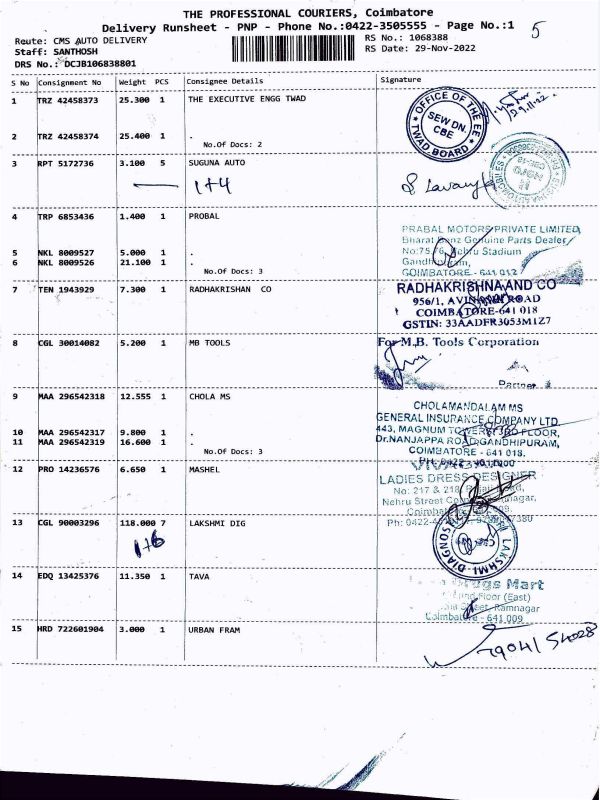 THE PROFESSIONAL COURIERS, Coimbatore
Delivery Runsheet - PNP - Phone No.:0422-3505555 - Page No.:1
5
Route: CMS AUTO DELIVERY
RS No.: 1068388
Staff: SANTHOSH
RS Date: 29-Nov-2022
DRS No.: DCJB106838801
S No Consignment No Weight PCS Consignee Details Signature
1 TRZ 42458373 25.300 1 THE EXECUTIVE ENGG TWAD
OFFICE OF THE EE
SEW DN.
CBE
TWAD BOARD
29.11.22
2 TRZ 42458374 25.400 1 .
No.Of Docs: 2
3 RPT 5172736 3.100 5 SUGUNA AUTO
1+4
4 TRP 6853436 1.400 1 PROBAL
PRABAL MOTORS PRIVATE LIMITED
Bharat Benz Genuine Parts Dealer
5 NKL 8009527 5.000 1 .
Nehru Stadium
6 NKL 8009526 21.100 1 .
No.Of Docs: 3
COIMBATORE - 641 012
7 TEN 1943929 7.300 1 RADHAKRISHAN CO
RADHAKRISHNA AND CO
956/1, AVINASHI ROAD
COIMBATORE-641 018
GSTIN: 33AADFR3053M1Z7
8 CGL 30014082 5.200 1 MB TOOLS
For M.B. Tools Corporation
Partner
9 MAA 296542318 12.555 1 CHOLA MS
CHOLAMANDALAM MS
GENERAL INSURANCE COMPANY LTD
443, MAGNUM TOWER, 3RD FLOOR,
10 MAA 296542317 9.800 1 .
11 MAA 296542319 16.600 1 .
Dr.NANJAPPA ROAD, GANDHIPURAM,
No.Of Docs: 3
COIMBATORE - 641 018.
12 PRO 14236576 6.650 1 MASHEL
LADIES DRESS DESIGNER
No: 217 & 218,
Nehru Street
Ph: 0422-
13 CGL 90003296 118.000 7 LAKSHMI DIG
1+6
LAKSHMI DIAGNOS
14 EDQ 13425376 11.350 1 TAVA
Drugs Mart
Floor (East)
Ramnagar
Coimbatore - 641 009
15 HRD 722601904 3.000 1 URBAN FRAM